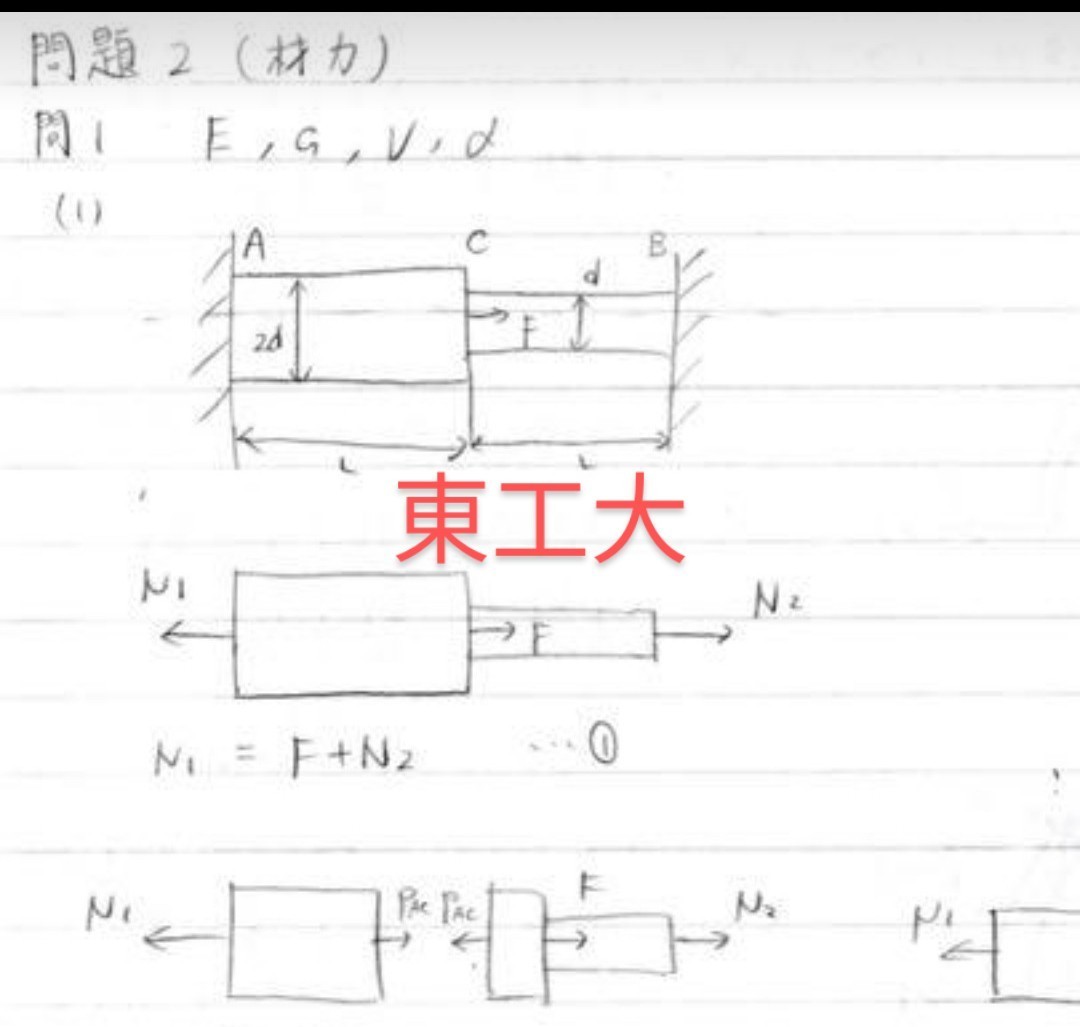 問題 2 (材力)
問1 E, G, ν, α
(1)
A C B
d
2d F
L L
東工大
N1 F N2
N1 = F+N2 …①
N1 PAC PAC F N2 N1